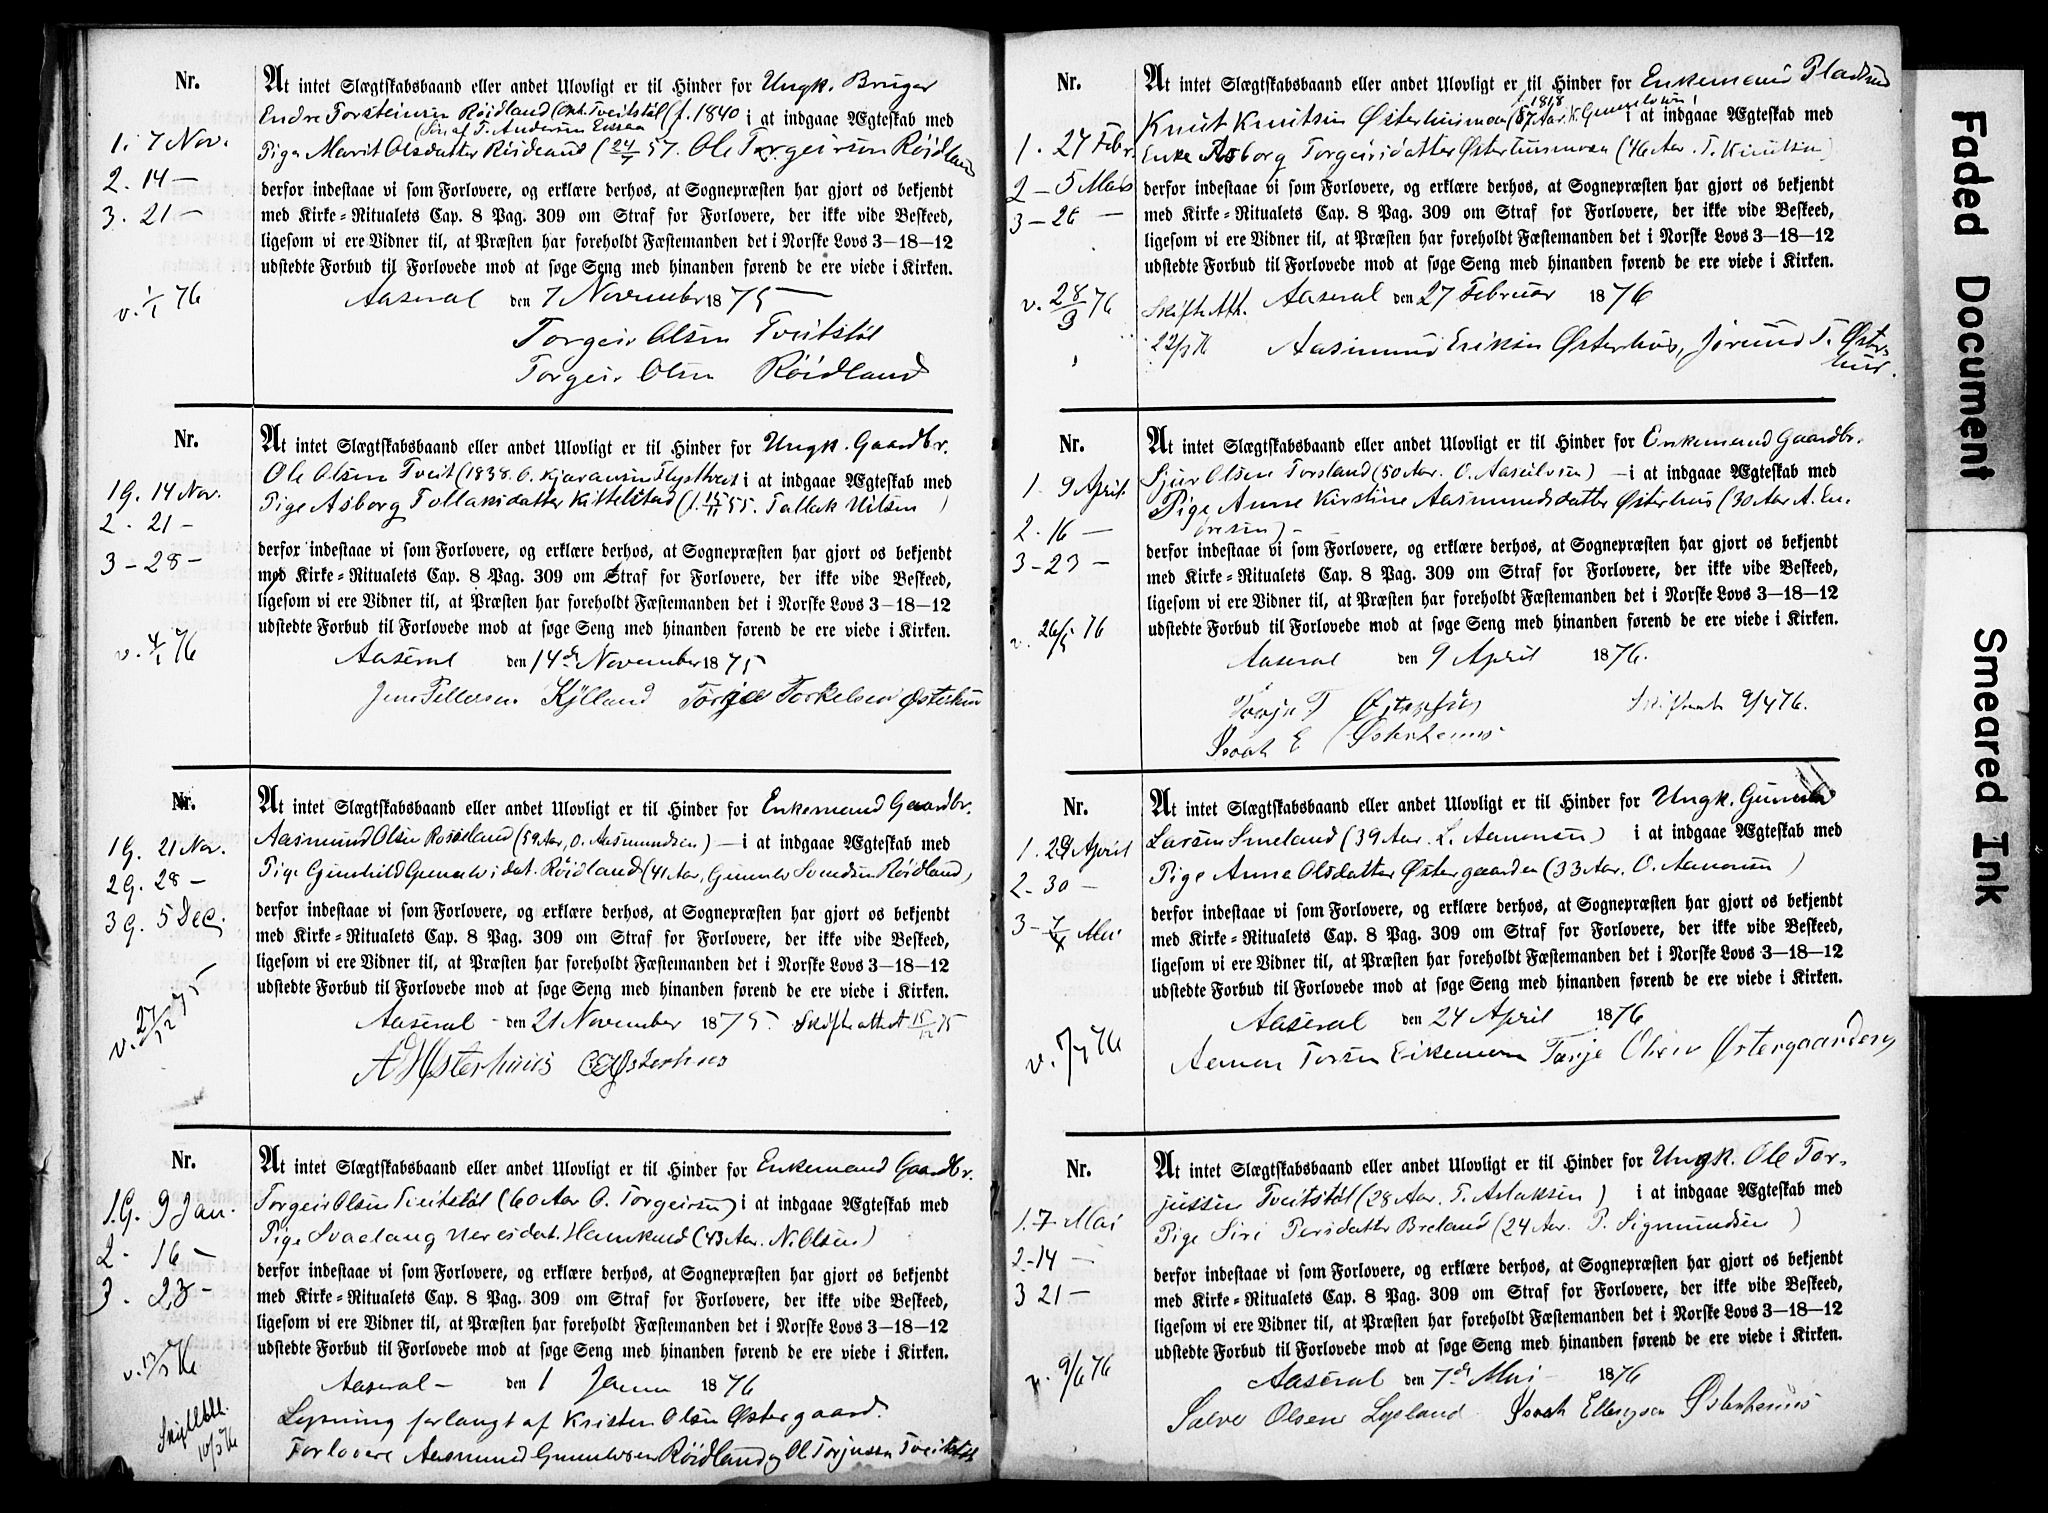 Nr.
At intet Slægtskabsbaand eller andet Ulovligt er til Hinder for Ungk. Bruger
Endre Torsteinsen Røidland (f. 1840 i at indgaae Ægteskab med
1. 7 Nov.
Pige Marit Olsdatter Røidland (24/7 57. Ole Torgeirsen Røidland
2. 14 —
derfor indestaae vi som Forlovere, og erklære derhos, at Sognepræsten har gjort os bekjendt
3. 21 —
med Kirke-Ritualets Cap. 8 Pag. 309 om Straf for Forlovere, der ikke vide Beskeed,
ligesom vi ere Vidner til, at Præsten har foreholdt Fæstemanden det i Norske Lovs 3—18—12
udstedte Forbud til Forlovede mod at søge Seng med hinanden førend de ere viede i Kirken.
v. 1/1 76
Aaseral den 7 November 1875 —
Torgeir Olsen Tveitstøl
Torgeir Olsen Røidland
Nr.
At intet Slægtskabsbaand eller andet Ulovligt er til Hinder for Ungk. Gaardbr.
Ole Olsen Tveit (1838. O. Kjøransen i at indgaae Ægteskab med
1G. 14 Nov.
Pige Asborg Tollaksdatter Kittelstad (f. 15/11 55. Tallak Nilsen )
2. 21 —
derfor indestaae vi som Forlovere, og erklære derhos, at Sognepræsten har gjort os bekjendt
3 — 28 —
med Kirke-Ritualets Cap. 8 Pag. 309 om Straf for Forlovere, der ikke vide Beskeed,
ligesom vi ere Vidner til, at Præsten har foreholdt Fæstemanden det i Norske Lovs 3—18—12
udstedte Forbud til Forlovede mod at søge Seng med hinanden førend de ere viede i Kirken.
v. 4/1 76
Aaseral den 14de November 1875
Jens Kylland Torkelsen Østerhus
Nr.
At intet Slægtskabsbaand eller andet Ulovligt er til Hinder for Enkemand Gaardbr.
Aasmund Olsen Rosseland (59 Aar, O. Aasmundsen) — i at indgaae Ægteskab med
1G. 21 Nov.
Pige Gunhild Gunulvsdat. Røidland (41 Aar, Gunulv Svendsen Røidland)
2G. 28 —
derfor indestaae vi som Forlovere, og erklære derhos, at Sognepræsten har gjort os bekjendt
3G. 5 Dec.
med Kirke-Ritualets Cap. 8 Pag. 309 om Straf for Forlovere, der ikke vide Beskeed,
ligesom vi ere Vidner til, at Præsten har foreholdt Fæstemanden det i Norske Lovs 3—18—12
udstedte Forbud til Forlovede mod at søge Seng med hinanden førend de ere viede i Kirken.
v. 27/12 75
Aaseral — den 21 November 1875. Skifteattest 15/12 75
Østerhuus Østerhuus
Nr.
At intet Slægtskabsbaand eller andet Ulovligt er til Hinder for Enkemand Gaardbr.
Torgeir Olsen Tveitstøl (60 Aar O. Torgeirsen) i at indgaae Ægteskab med
1.G. 9 Jan.
Pige Svaelaug (43 Aar. N. Olsen)
2 - 16 —
derfor indestaae vi som Forlovere, og erklære derhos, at Sognepræsten har gjort os bekjendt
3. 23 —
med Kirke-Ritualets Cap. 8 Pag. 309 om Straf for Forlovere, der ikke vide Beskeed,
ligesom vi ere Vidner til, at Præsten har foreholdt Fæstemanden det i Norske Lovs 3—18—12
udstedte Forbud til Forlovede mod at søge Seng med hinanden førend de ere viede i Kirken.
v. 13/3 76
Aaseral — den 1 1876
Lysning forlangt af Kristen Olsen Østergaard.
10/3 76
Forlovere Aasmund Gunulvsen Røidland og Ol Torjussen Tveitstøl
Nr.
At intet Slægtskabsbaand eller andet Ulovligt er til Hinder for Enkemand Pladsmd
Knut Knutsen Østerhusmoen (57 Aar. K. i at indgaae Ægteskab med
1. 27 Febr.
Enke Asborg Torgeirsdatter Østerhusmoen (46 Aar. T. Knutsen)
2 — 5 Mars
derfor indestaae vi som Forlovere, og erklære derhos, at Sognepræsten har gjort os bekjendt
3 — 26 —
med Kirke-Ritualets Cap. 8 Pag. 309 om Straf for Forlovere, der ikke vide Beskeed,
ligesom vi ere Vidner til, at Præsten har foreholdt Fæstemanden det i Norske Lovs 3—18—12
udstedte Forbud til Forlovede mod at søge Seng med hinanden førend de ere viede i Kirken.
v. 28/3 76
Skifte Att. Aaseral den 27 Februar 1876
22/3 76 Aasmund Eriksen Østerhus, Jørund T. Øster-
hus.
Nr.
At intet Slægtskabsbaand eller andet Ulovligt er til Hinder for Enkemand Gaardbr.
Sjur Olsen Torsland (50 Aar. O. Aasulvsen) — i at indgaae Ægteskab med
1. 9 April.
Pige Anne Kirstine Aasmundsdatter Østerhus (30 Aar A. En-
2. 16 —
dresen) —
derfor indestaae vi som Forlovere, og erklære derhos, at Sognepræsten har gjort os bekjendt
3 — 23 —
med Kirke-Ritualets Cap. 8 Pag. 309 om Straf for Forlovere, der ikke vide Beskeed,
ligesom vi ere Vidner til, at Præsten har foreholdt Fæstemanden det i Norske Lovs 3—18—12
udstedte Forbud til Forlovede mod at søge Seng med hinanden førend de ere viede i Kirken.
v. 26/5 76
Aaseral den 9 April 1876.
Torje T Østerhus 9/4 76.
Isaak E Østerhuus
Nr.
At intet Slægtskabsbaand eller andet Ulovligt er til Hinder for Ungk. Gunnar
Larsen Smeland (39 Aar. L. Aamonsen) i at indgaae Ægteskab med
1. 24 April
Pige Anne Olsdatter Østergaarden (33 Aar. O. Aamonsen)
2. 30 —
derfor indestaae vi som Forlovere, og erklære derhos, at Sognepræsten har gjort os bekjendt
3 — 7 Mai
med Kirke-Ritualets Cap. 8 Pag. 309 om Straf for Forlovere, der ikke vide Beskeed,
ligesom vi ere Vidner til, at Præsten har foreholdt Fæstemanden det i Norske Lovs 3—18—12
udstedte Forbud til Forlovede mod at søge Seng med hinanden førend de ere viede i Kirken.
Aaseral den 24 April 1876
Aamon Torsen Eikemoen Torje Olsen Østergaarden
Nr.
At intet Slægtskabsbaand eller andet Ulovligt er til Hinder for Ungk. Ole Tor-
jussen Tveitstøl (28 Aar. T. Aslaksen ) i at indgaae Ægteskab med
1. 7 Mai
Pige Siri Persdatter Breland (24 Aar. P. Sigmundsen )
2 - 14 —
derfor indestaae vi som Forlovere, og erklære derhos, at Sognepræsten har gjort os bekjendt
3 21 —
med Kirke-Ritualets Cap. 8 Pag. 309 om Straf for Forlovere, der ikke vide Beskeed,
ligesom vi ere Vidner til, at Præsten har foreholdt Fæstemanden det i Norske Lovs 3—18—12
udstedte Forbud til Forlovede mod at søge Seng med hinanden førend de ere viede i Kirken.
v. 9/6 76
Aaseral den 7de Mai — 1876
Salve Olsen Lysland Isaak Ellingsen Østerhuus
Faded Document
Smeared Ink